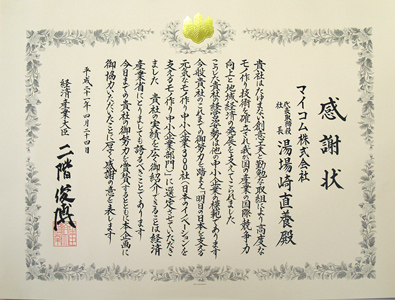 感謝状
マイコム株式会社
代表取締役
社長
湯場崎直養殿
貴社はたゆまない創意工夫と勤勉な取組により高度な
モノ作り技術を確立され我が国の産業の国際競争力
向上と地域経済の発展を支えてこられました
こうした貴社の経営姿勢は他の中小企業の模範であります
今般貴社のこれまでの御努力を踏まえ「明日の日本を支える
元気なモノ作り中小企業300社(日本のイノベーションを
支えるモノ作り中小企業部門)」に選定させていただき
ました 貴社の実績を広く御紹介できることは経済
産業省にとりましても誇るべきことであります
今日までの貴社の御努力を賞賛するとともに本企画に
御協力いただいたことに厚く感謝の意を表します
平成二十一年四月二十四日
経済産業大臣
二階俊博